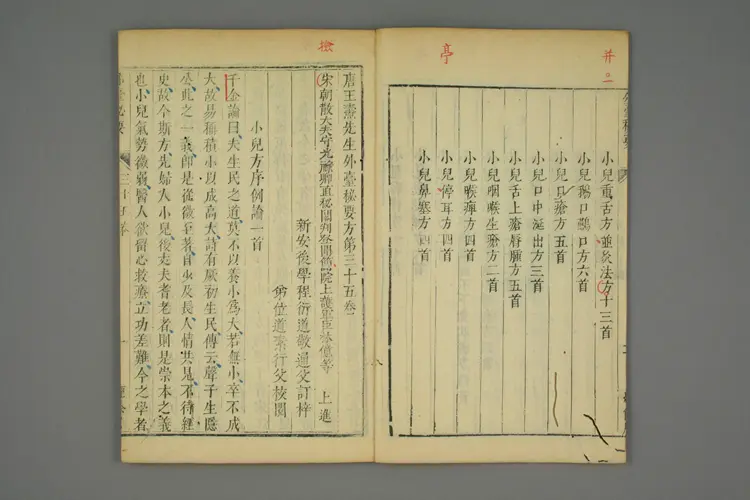 小兒重舌方並灸法方十三首
小兒鵝口方六首
小兒口瘡方五首
小兒口中涎出方三首
小兒舌上瘡唇腫方五首
小兒咽喉生瘡方二首
小兒喉痺方四首
小兒停耳方四首
小兒鼻塞方四首
唐王燾先生外臺秘要方第三十五卷
宋朝散大夫守光祿卿直秘閣判登聞檢院上護軍臣林億等 上進
新安後學程衍道敬通父訂梓
弟位道素行父校閱
小兒方序例論一首
千金論曰夫生民之道莫不以養小爲大若無小卒不成
大故易稱積小以成高大詩有厥初生民傳云聲子生隱
公此之一義即是從微至著自少及長人情共見不待經
史故今斯方先婦人小兒後丈夫耆老者則是崇本之義
也小兒氣勢微弱醫人欲留心救療立功差難今之學者